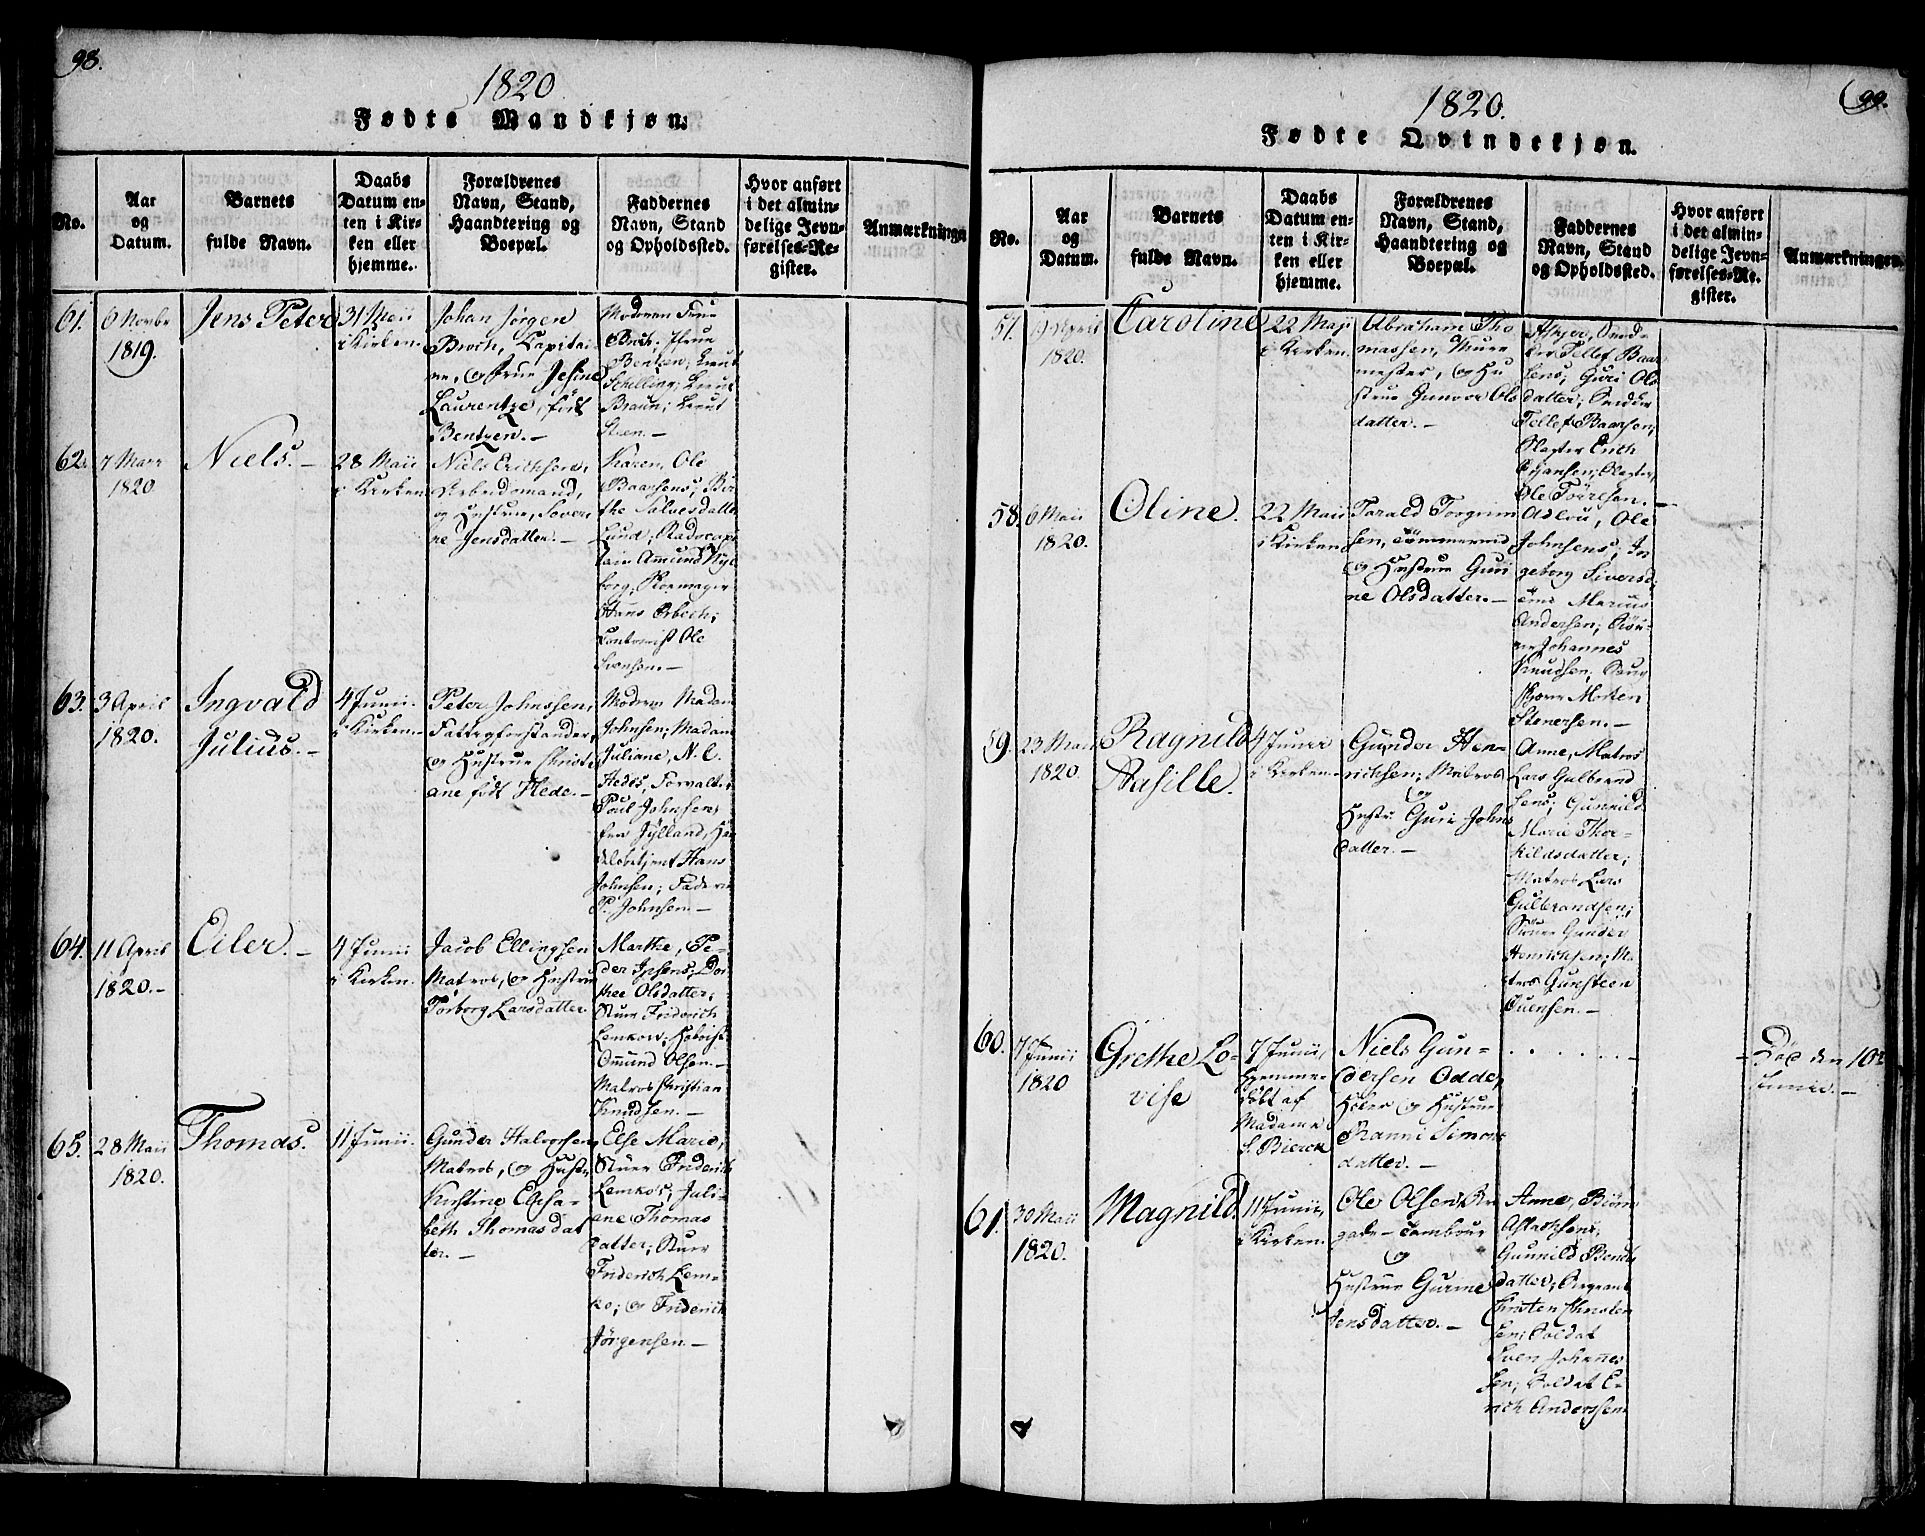 98.
1820
Fødte Mandkjøn.
No.
Aar
og
Datum.
Barnets
fulde Navn.
Daabs
Datum en-
ten i Kir-
ken eller
hjemme.
Forældrenes
Navn, Stand,
Haandtering og
Boepæl.
Faddernes
Navn, Stand
og Opholdssted.
Hvor anført
i det almin-
delige Jevn-
førelses-Re-
gister.
Anmærkninger
61.
6 Novbr
1819.
Jens Peter
31 Maii
i Kirken.
Johan Jørgen
Broch, Capitai-
ne, og Frue Jesine
Laurentze, født
Bentzen.-
Moderen Frue
Broch; Frue
Bentzen; Lieut
Schilling; Lieut
Braun; Lieut
Steen.-
62.
7 Mars
1820
Niels.-
28 Maii
i Kirken
Niels Erichsen,
Arbeidsmand,
og Hustrue, Severi-
ne Jensdatter.-
Karen, Ole
Baarsens; Bir-
the Salvesdatter
Lund; Radocapi-
tain Amund Nye-
borg; Skomager
Hans Orbech;
Contorist Ole
Svensen.-
63.
3 April
1820.
Ingvald
Julius.-
4 Junii.
i Kirken.
Peter Johnsen,
Fattigforstander,
og Hustrue Christi-
ane født Hede.-
Moderen Madm
Johnsen; Madam
Juliane, N. C.
Hedes, Forvalter
Poul Johnsen
fra Jylland, Han-
delsbetjent Hans
Johnsen; Faderen
P. Johnsen.-
64.
11 April
1820.-
Eiler.-
4 Junii
i Kirken.
Jacob Ellingsen
Matros, og Hustrue
Torborg Larsdatter
Marthe, Pe-
der Ipsens; Dor-
thee Olsdatter;
Stuer Friderich
Lemkow;
Omund Olsen.-
Matros Christian
Knudsen.-
65.
28 Maii
1820.
Thomas.
11 Junii.
Gunder Halvorsen
Matros, og Hustr.
Kirstine Elisa-
beth Thomasdat
ter.-
Else Marie,
Stuer Friderich
Lemkos; Juli-
ane Thomas
datter; Stuer
Friderich Lem-
ko; og Friderich
Jørgensen.-
99.
1820.
Fødte Qvindekjøn.
No.
Aar
og
Datum.
Barnets
fulde Navn.
Daabs
Datum en-
ten i Kir-
ken eller
hjemme.
Forældrenes
Navn, Stand,
Haandtering og
Boepæl.
Faddernes
Navn, Stand
og Opholdssted.
Hvor anført
i det almin-
delige Jevn-
førelses-Re-
gister.
Anmærkninger.
57.
9 April
1820.
Caroline
22 Maji
i Kirken.
Abraham Tho
massen, Muur
mester, og Hu
strue Gunvor Ols
datter.-
Asper, Sned-
ker Tellef Baar
sens; Guri Ols
datter; Snedker
Tellef Baarsen;
Slagter Erich
Hansen; Slagter
Ole Tøresen.-
58.
6 Maii
1820.
Oline.
22 Maii
i Kirken
Tarald Torgrim
sen, Tømmermd
og Hustrue Guri
ne Olsdatter.-
Adlou, Ole
Johnsens; In
geborg Siversd;
Marius
Andersen;
Johannes
Knudsen;
Morten
Stenersen.-
59.
23 Mars
1820.
Ragnild
Aasille.
4 Junii
i Kirken.
Gunder Hen-
richsen, Matros
og
Hustr. Guri Johns
datter.-
Anne, Matros
Lars Gulbrand
sens; Gunnild
Marie Thor-
kildsdatter;
Matros Lars
Gulbrandsen;
Stuer Gunder
Henrichsen; M-
tros Gunsteen
Evensen.-
60.
7 Junii
1820
Grethe Lo-
vise
7 Junii,
Hjemme-
døbt af
Madame
S. Bierck
Niels Gun-
dersen Odde,
Høker og Hustrue
Ranni Simons
datter.-
- Død den 10de
Junii.-
61.
30 Maii
1820.
Magnild
11 Junii,
i Kirken.
Ole Olsen, Bri
gade-Tambour
og
Hustrue Gurine
Jensdatter.-
Anne, Biørn
Aslachsens;
Gunnild Bents
datter; Sergeant
Christen Christen
sen; Soldat
Sven Johannes
sen; Soldat E-
rich Anderssen